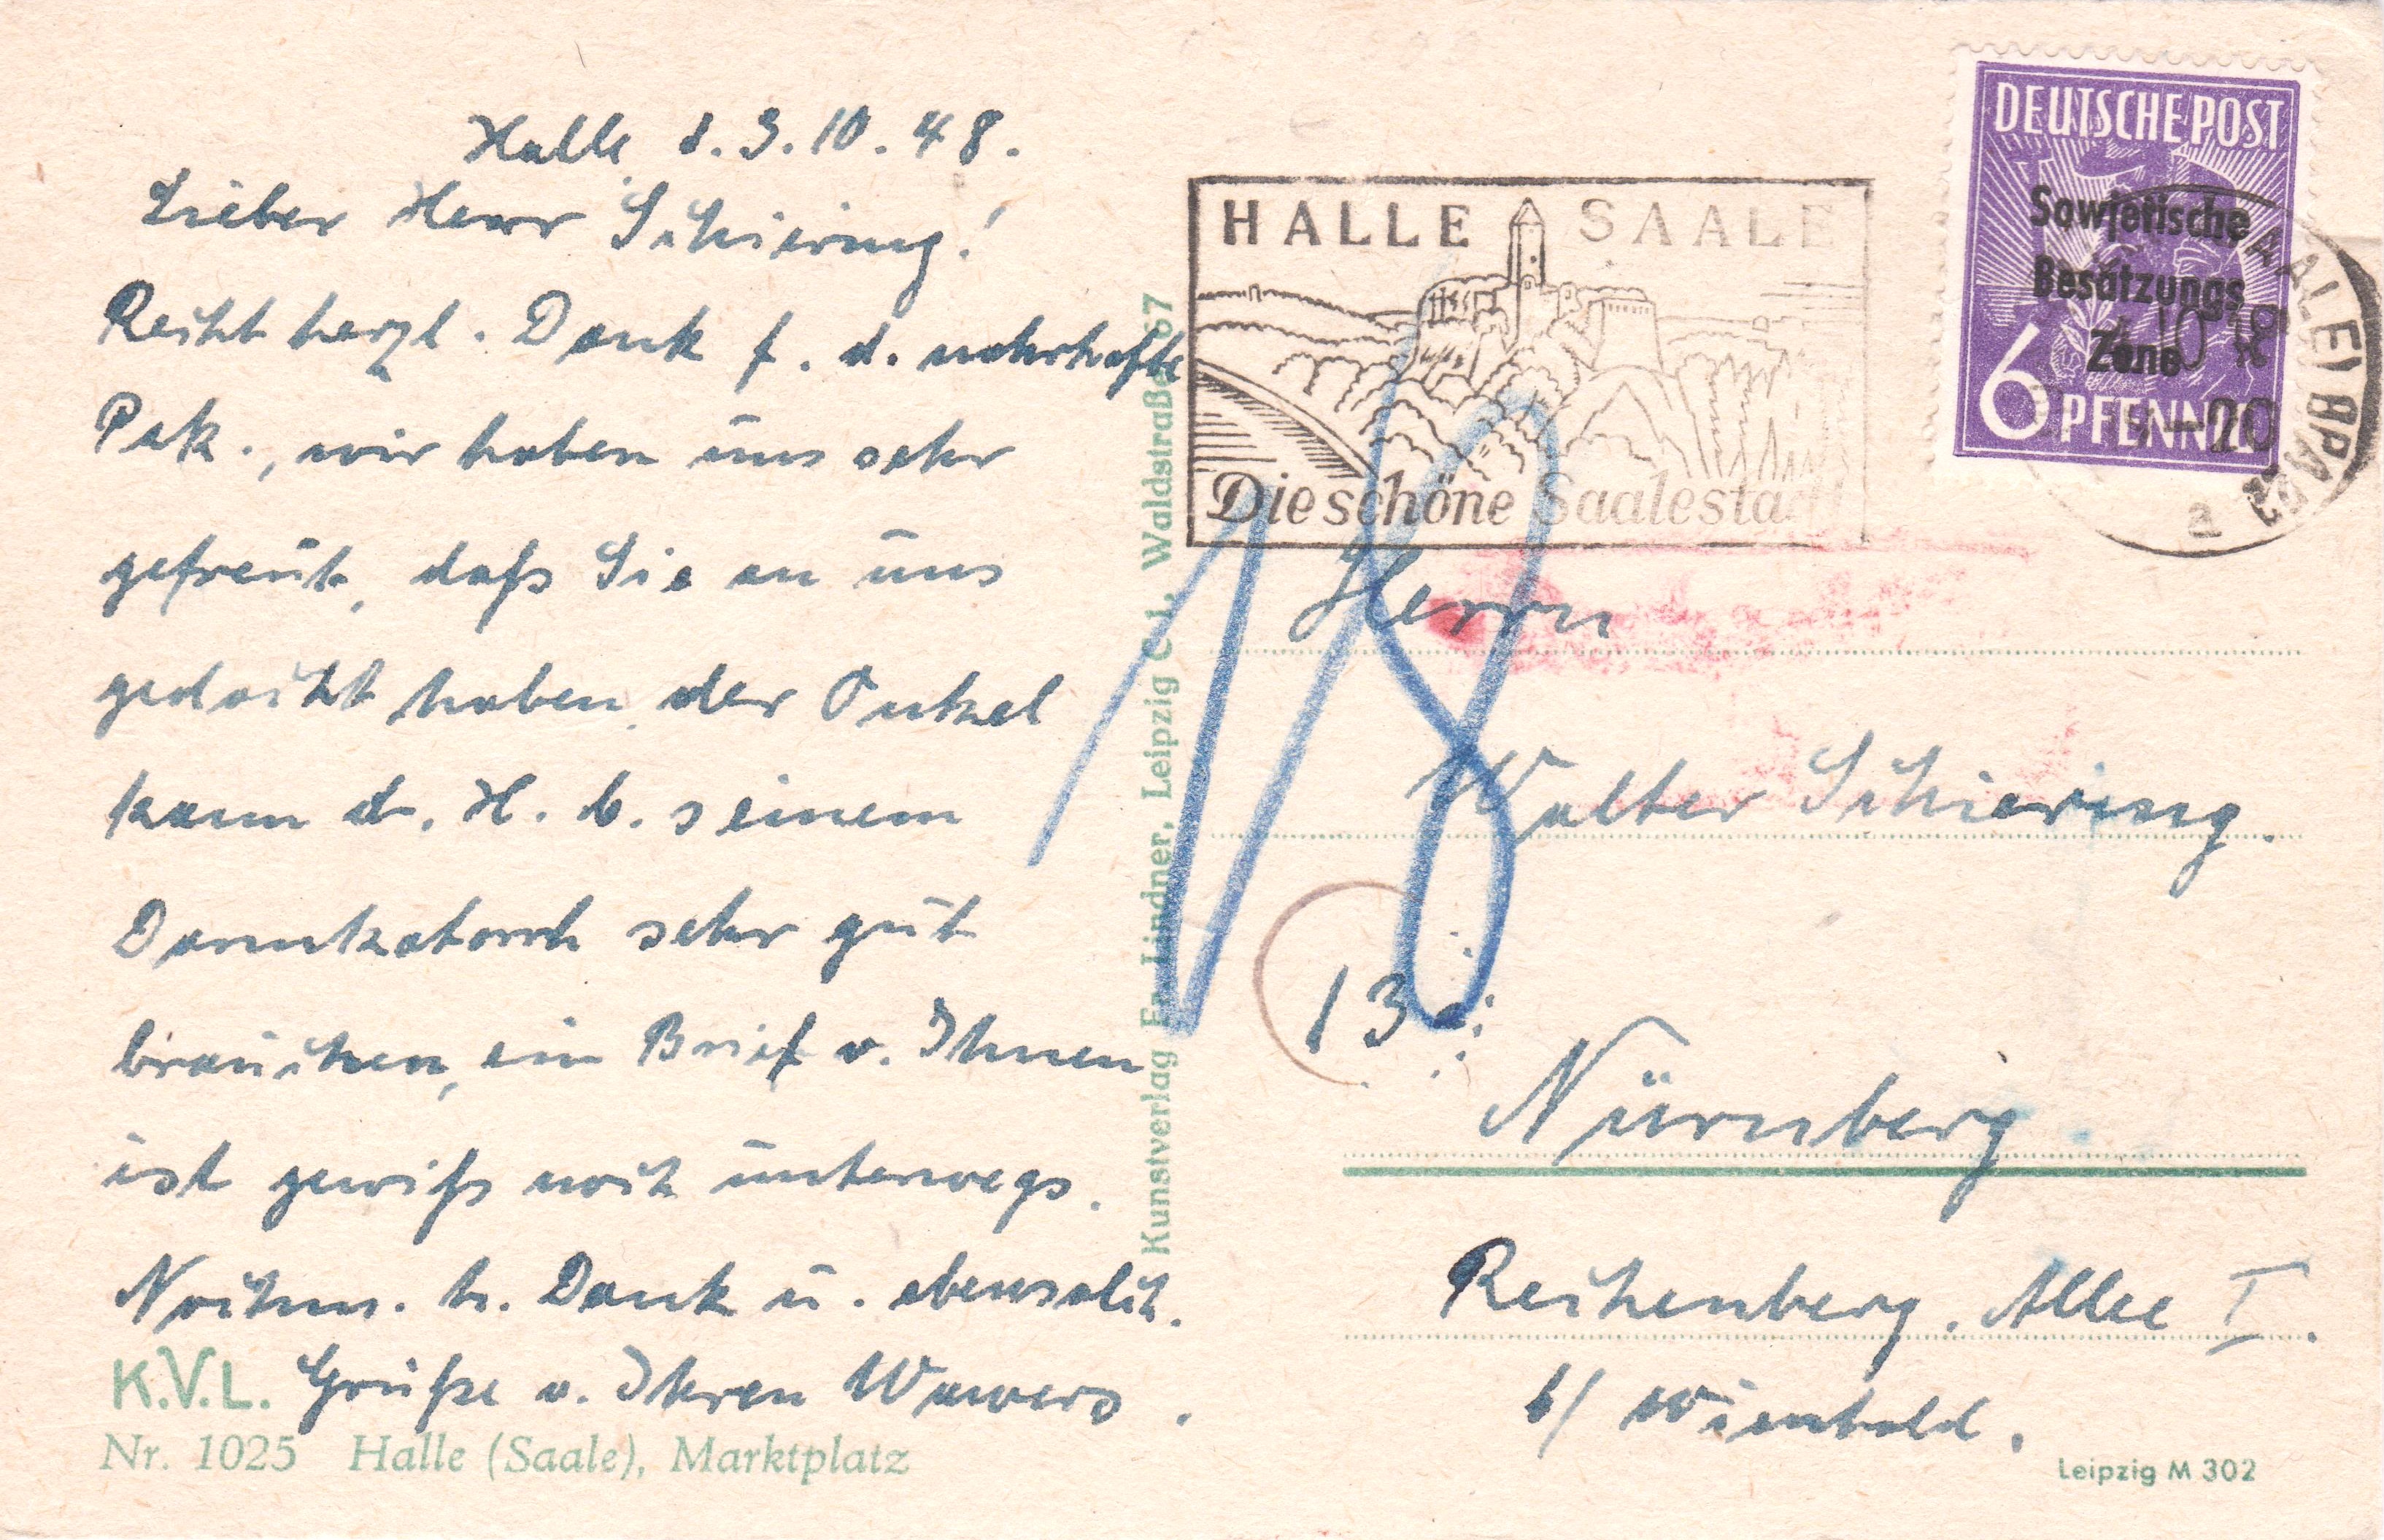 Halle, d. 3.10.48.
Lieber Herr Schiering!
Recht herzl. Dank f. d. nahrhafte
Pak., wir haben uns sehr
gefreut, daß Sie an uns
gedacht haben, der Onkel
kann d. H. b. seinem
sehr gut
brauchen, ein Brief v. Ihnen
ist gewiß noch unterwegs.
Nochm. h. Dank u. ebensolch.
Grüße v. Ihren Wawers.
K.V.L.
Nr. 1025 Halle (Saale), Marktplatz
Kunstverlag Fr. Lindner, Leipzig C 1, Waldstraße 67
HALLE SAALE
Die schöne Saalestadt
DEUTSCHE POST
Sowjetische
Besatzungs
Zone
6 PFENNIG
18
Herrn
Walter Schiering.
13a
Nürnberg
Reichenberg. Allee I.
b/ Wienhold.
Leipzig M 302